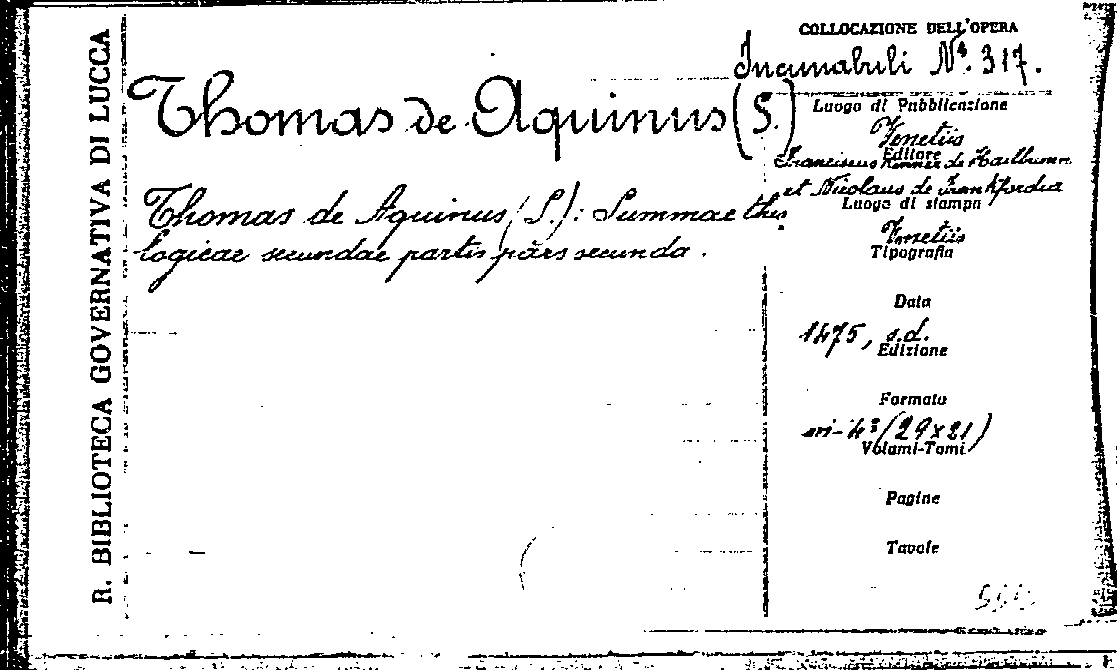 R. BIBLIOTECA GOVERNATIVA DI LUCCA
Thomas de Aquinus (S.)
Thomas de Aquinus (S.): Summae theo
logicae secundae partis pars secunda.
COLLOCAZIONE DELL'OPERA
Incunabuli Nº. 317.
Luogo di Pubblicazione
Venetiis
Editore
Franciscus Renner de Hailbrunn
et Nicolaus de Frankfordia
Luogo di stampa
Venetiis
Tipografia
Data
1475, s.d.
Edizione
Formato
in-4º (29x21)
Volumi-Tomi
Pagine
Tavole